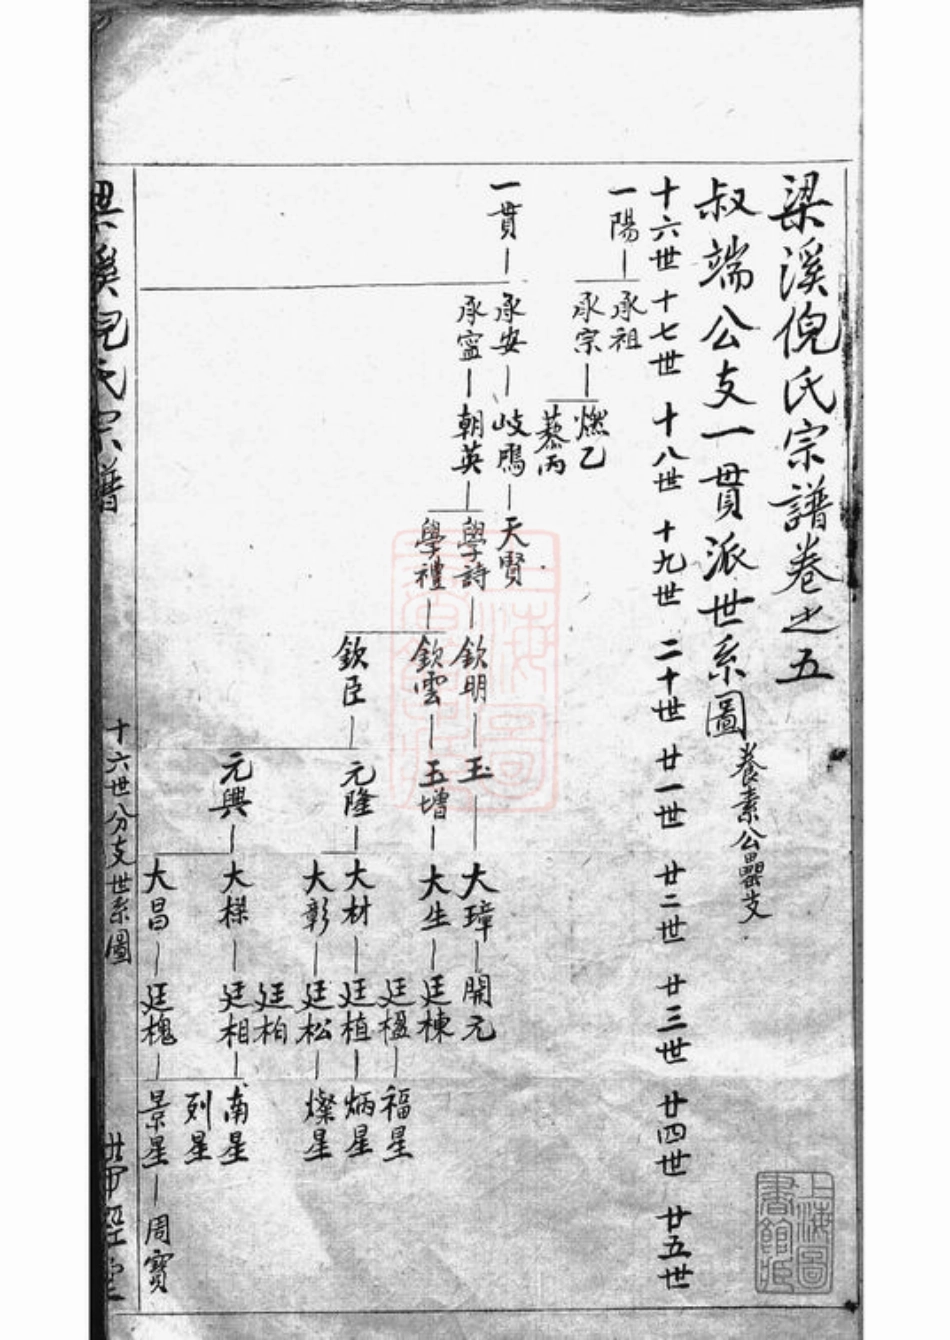 梁溪倪氏宗譜卷之五
叔端公支一貫派世系圖 養素公罍支
十六世 十七世 十八世 十九世 二十世 廿一世 廿二世 廿三世 廿四世 廿五世
一陽 承祖
承宗 燃乙
藜丙
一貫 承安 岐鳳 天賢
承寧 朝英 學詩 欽明 玉 大璋 開元
學禮 欽雲 玉增 大生 廷棟
廷楹 福星
欽臣 元隆 大材 廷植 炳星
大彰 廷松 燦星
廷柏
元興 大樑 廷相 南星
列星
大昌 廷槐 景星 周寶
梁溪倪氏宗譜
十六世分支世系圖
上海圖書館藏
上海圖書館藏